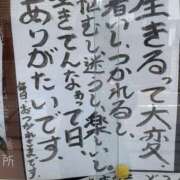 生きるって大変。
着るし、つかれるし、
悩むし迷うし、楽しいし。
生きてんなぁって日、
ありがたいです。
毎日、おつかれさまです
所